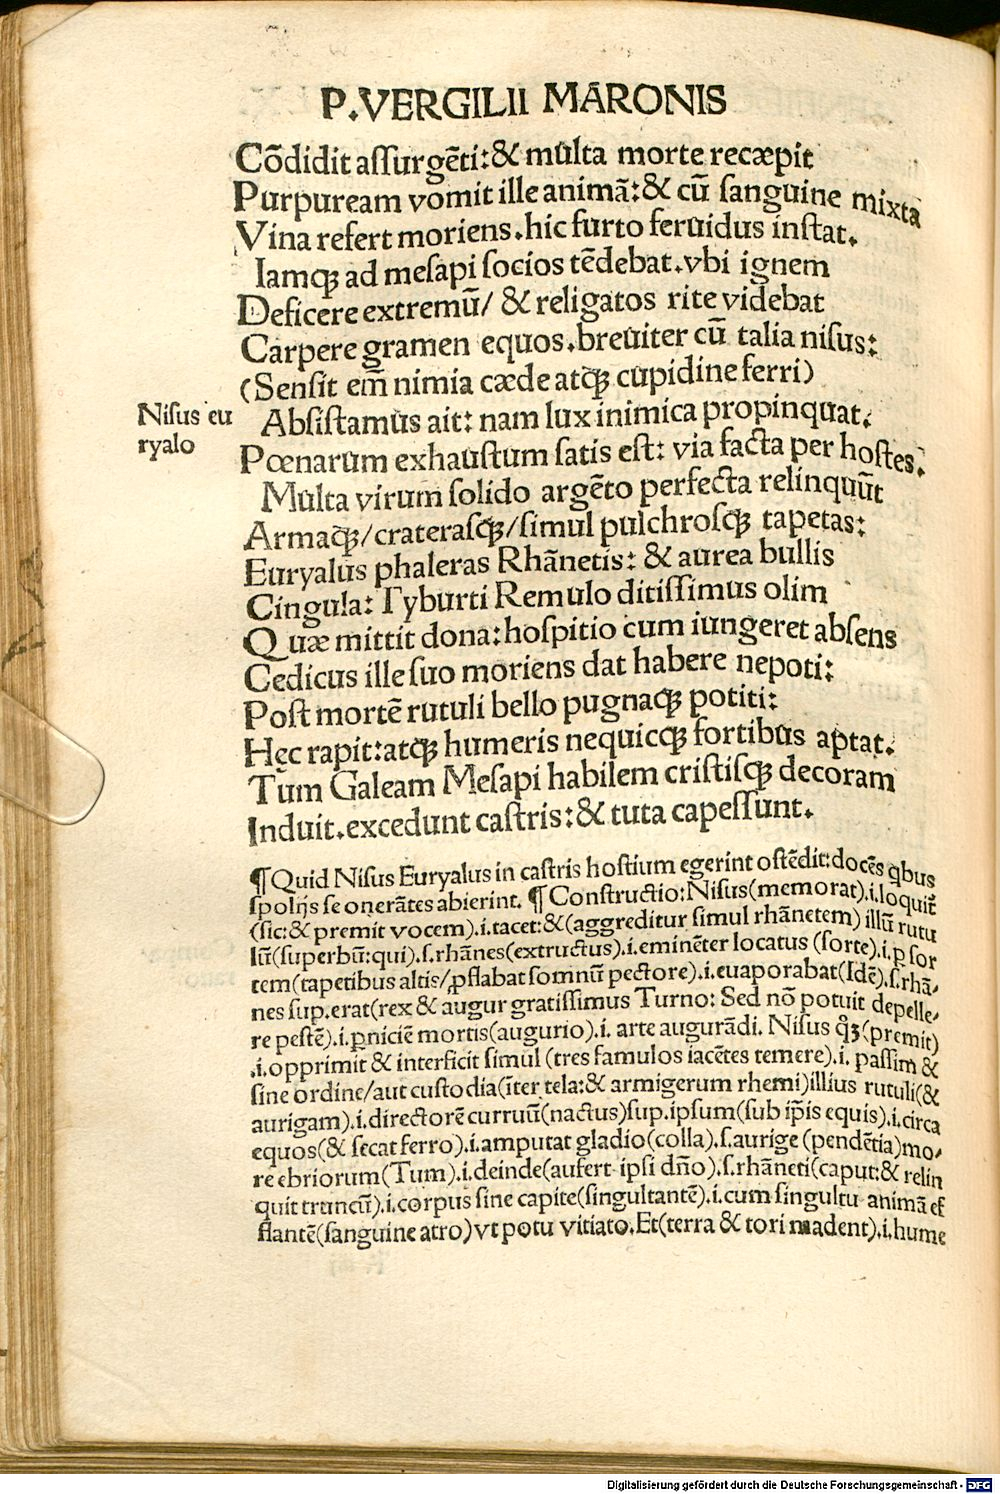 P.VERGILII MARONIS
Cōdidit aſſurgēti:& multa morte recæpit
Purpuream vomit ille animā:& cū ſanguine mixta
Vina refert moriens.hic furto feruidus inſtat.
Iamqꝫ ad meſapi ſocios tēdebat.vbi ignem
Deficere extremū/ & religatos rite videbat
Carpere gramen equos.breuiter cū talia niſus:
(Senſit em̄ nimia cæde atqꝫ cupidine ferri)
Niſus eu
ryalo
Abſiſtamus ait: nam lux inimica propinquat.
Pœnarum exhauſtum ſatis eſt: via facta per hoſtes.
Multa virum ſolido argēto perfecta relinquūt
Armaqꝫ/crateraſqꝫ/ſimul pulchroſqꝫ tapetas:
Euryalus phaleras Rhānetis: & aurea bullis
Cingula: Tyburti Remulo ditiſſimus olim
Quæ mittit dona:hoſpitio cum iungeret abſens
Cedicus ille ſuo moriens dat habere nepoti:
Poſt mortē rutuli bello pugnaqꝫ potiti:
Hec rapit:atqꝫ humeris nequicqꝫ fortibus aptat.
Tum Galeam Meſapi habilem criſtiſqꝫ decoram
Induit.excedunt caſtris:& tuta capeſſunt.
¶Quid Niſus Euryalus in caſtris hoſtium egerint oſtēdit:docēs qbus
ſpolijs ſe onerātes abierint. ¶ Conſtructio:Niſus(memorat).i.loquit̄
(ſic:& premit vocem).i.tacet:&(aggreditur ſimul rhānetem) illū rutu
lū(ſuperbū:qui).ſ.rhānes(extructus).i.eminēter locatus (forte).i.ꝑ ſor
tem(tapetibus altis/ꝓflabat ſomnū pectore).i.euaporabat(Idē).ſ.rhā
nes ſup.erat(rex & augur gratiſſimus Turno: Sed nō potuit depelle
re peſtē).i.ꝑniciē mortis(augurio).i. arte augurādi. Niſus qꝫ(premit)
.i.opprimit & interficit ſimul (tres famulos iacētes temere).i. paſſim &
ſine ordine/aut cuſtodia(īter tela:& armigerum rhemi)illius rutuli(&
aurigam).i.directorē curruū(nactus)ſup.ipſum(ſub ip̄is equis).i.circa
equos(& ſecat ferro).i.amputat gladio(colla).ſ.aurige (pendētia)mo
re ebriorum(Tum).i.deinde(aufert ipſi dn̄o).ſ.rhāneti(caput:& relin
quit truncū).i.corpus ſine capite(ſingultantē).i.cum ſingultu animā ef
flantē(ſanguine atro)vt potu vitiato.Et(terra & tori madent).i.hume
Digitalisierung gefördert durch die Deutsche Forschungsgemeinschaft - DFG